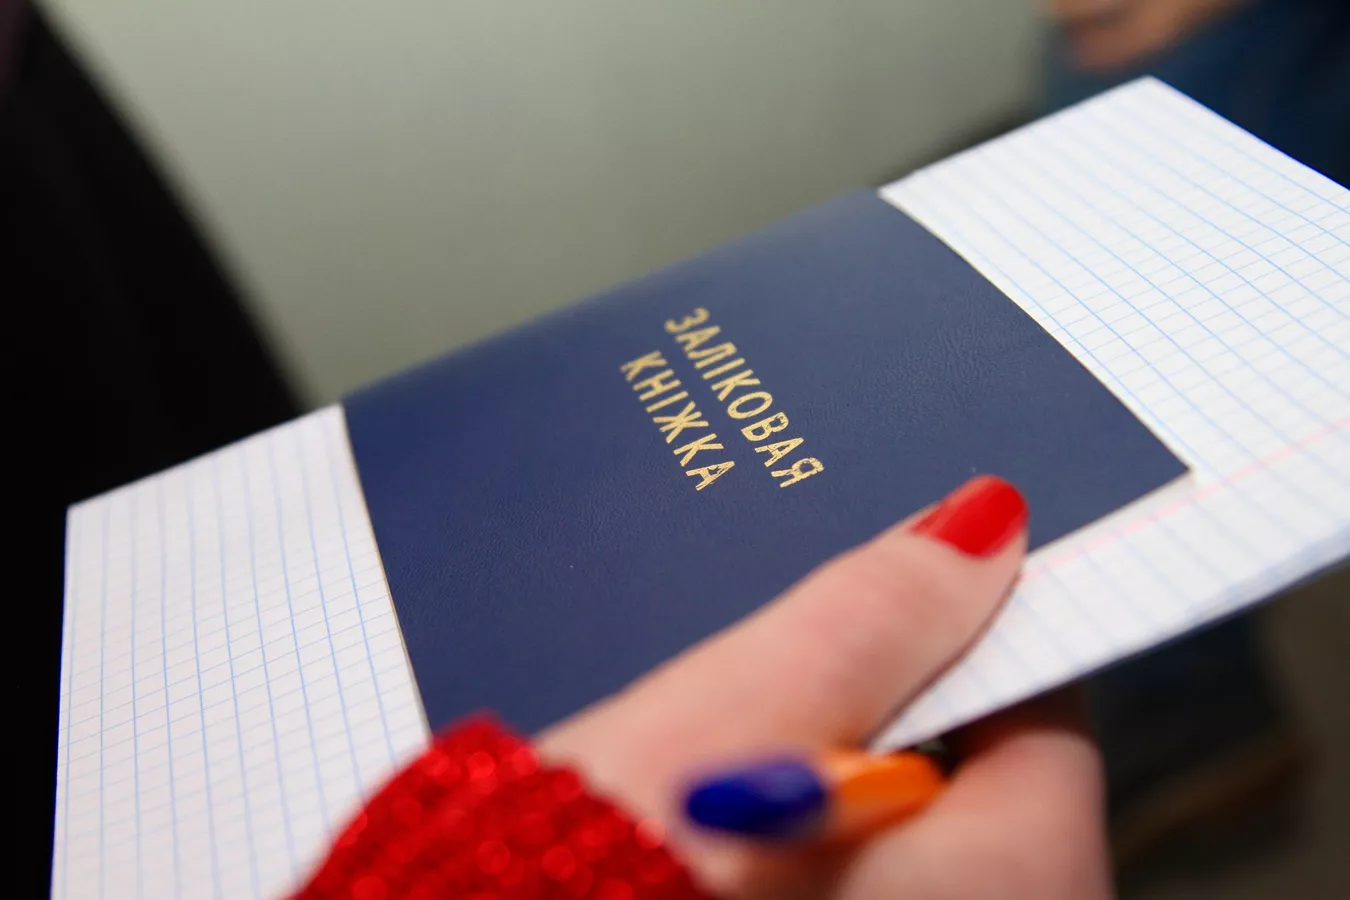 ЗАЛІКОВАЯ
КНІЖКА